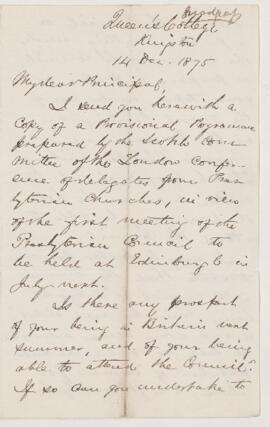 Queen's College
Kingston
14 Dec. 1875
My dear Principal,
I send you herewith a
Copy of a Provisional Programme
prepared by the Sub Com-
mittee of the London Confer-
ence of delegates from Pres-
byterian Churches, in view
of the first meeting of the
Presbyterian Council to
be held at Edinburgh in
July next.
Is there any prospect
of your being in Britain next
summer, and of your being
able to attend the Council?
If so can you undertake to